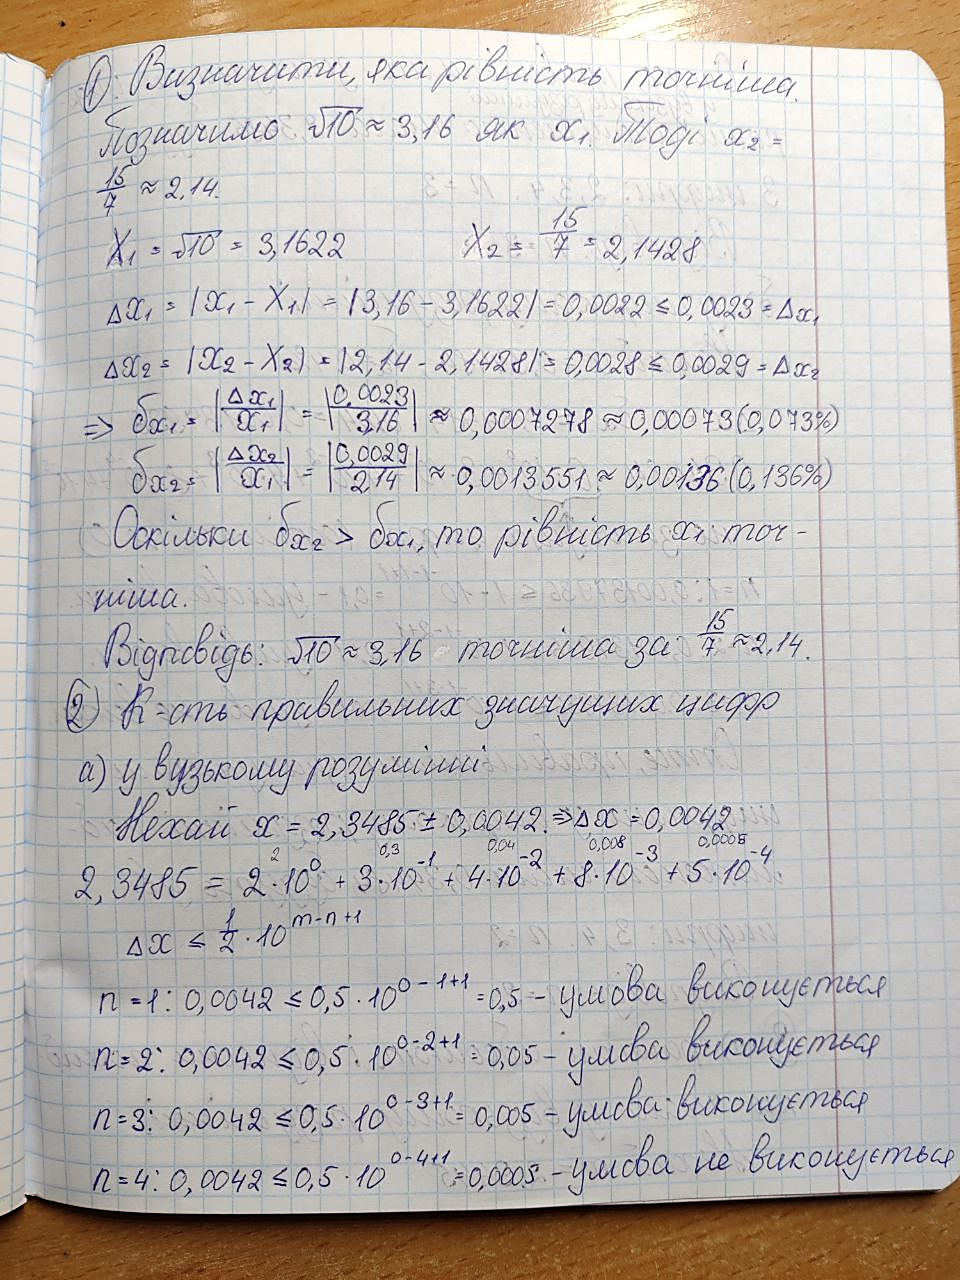 1). Визначити, яка рівність точніша.
Позначимо √10 ≈ 3,16 як x₁. Тоді x₂ =
15/7 ≈ 2,14.
X₁ = √10 = 3,1622 X₂ = 15/7 = 2,1428
Δx₁ = |x₁ - X₁| = |3,16 - 3,1622| = 0,0022 ≤ 0,0023 = Δx₁
Δx₂ = |x₂ - X₂| = |2,14 - 2,1428| = 0,0028 ≤ 0,0029 = Δx₂
⇒ δx₁ = |Δx₁/x₁| = |0,0023/3,16| ≈ 0,0007278 ≈ 0,00073 (0,073%)
δx₂ = |Δx₂/x₁| = |0,0029/2,14| ≈ 0,0013551 ≈ 0,00136 (0,136%)
Оскільки δx₂ > δx₁, то рівність x₁ точ-
ніша.
Відповідь: √10 ≈ 3,16 точніша за 15/7 ≈ 2,14.
2) К-сть правильних значущих цифр
а) у вузькому розумінні
Нехай x = 2,3485 ± 0,0042. ⇒ Δx = 0,0042
2 0,3 0,04 0,008 0,0005
2,3485 = 2·10⁰ + 3·10⁻¹ + 4·10⁻² + 8·10⁻³ + 5·10⁻⁴
Δx ≤ 1/2 · 10^(m-n+1)
n = 1: 0,0042 ≤ 0,5·10^(0-1+1) = 0,5 - умова виконується
n = 2: 0,0042 ≤ 0,5·10^(0-2+1) = 0,05 - умова виконується
n = 3: 0,0042 ≤ 0,5·10^(0-3+1) = 0,005 - умова виконується
n = 4: 0,0042 ≤ 0,5·10^(0-4+1) = 0,0005 - умова не виконується